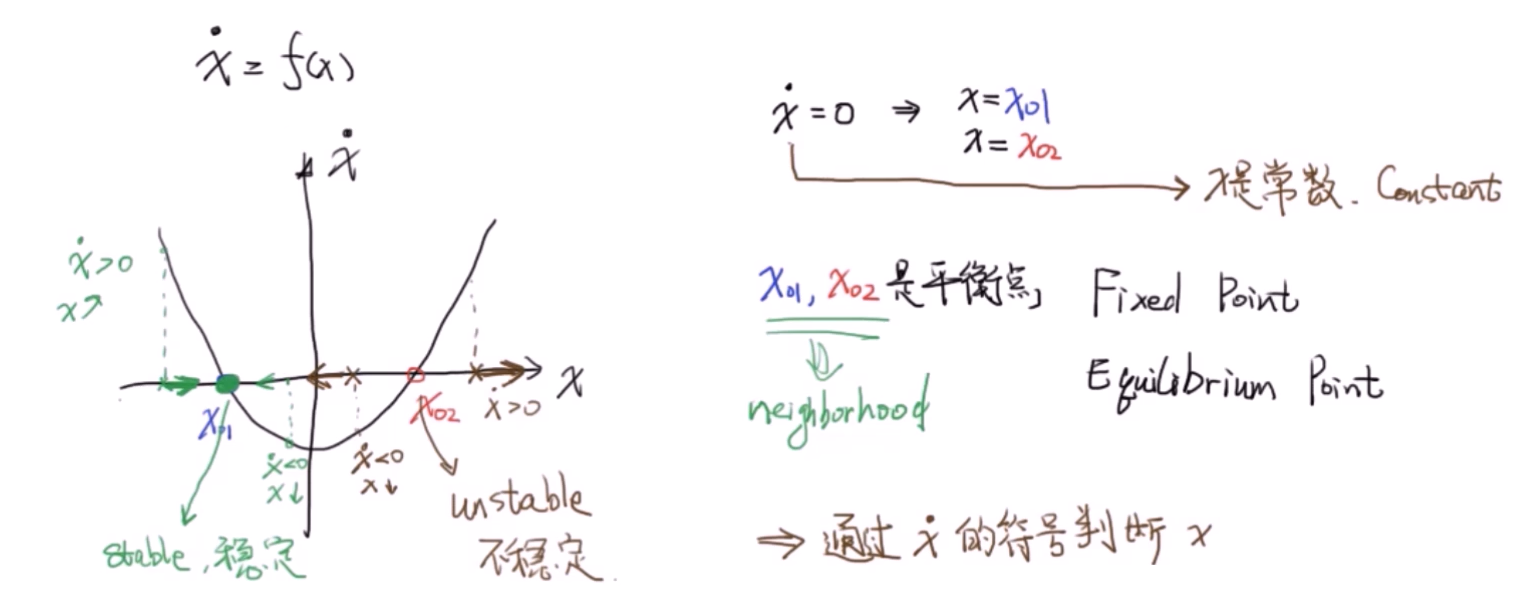 ẋ = f(x)
ẋ
ẋ>0
x↗
x
x₀₁
x₀₂
ẋ>0
ẋ<0
x↓
ẋ<0
x↓
stable, 稳定
unstable
不稳定.
ẋ=0 ⇒ x=x₀₁
x=x₀₂
x是常数. Constant
x₀₁, x₀₂ 是平衡点, Fixed Point
Equilibrium Point
neighborhood
⇒ 通过 ẋ 的符号判断 x